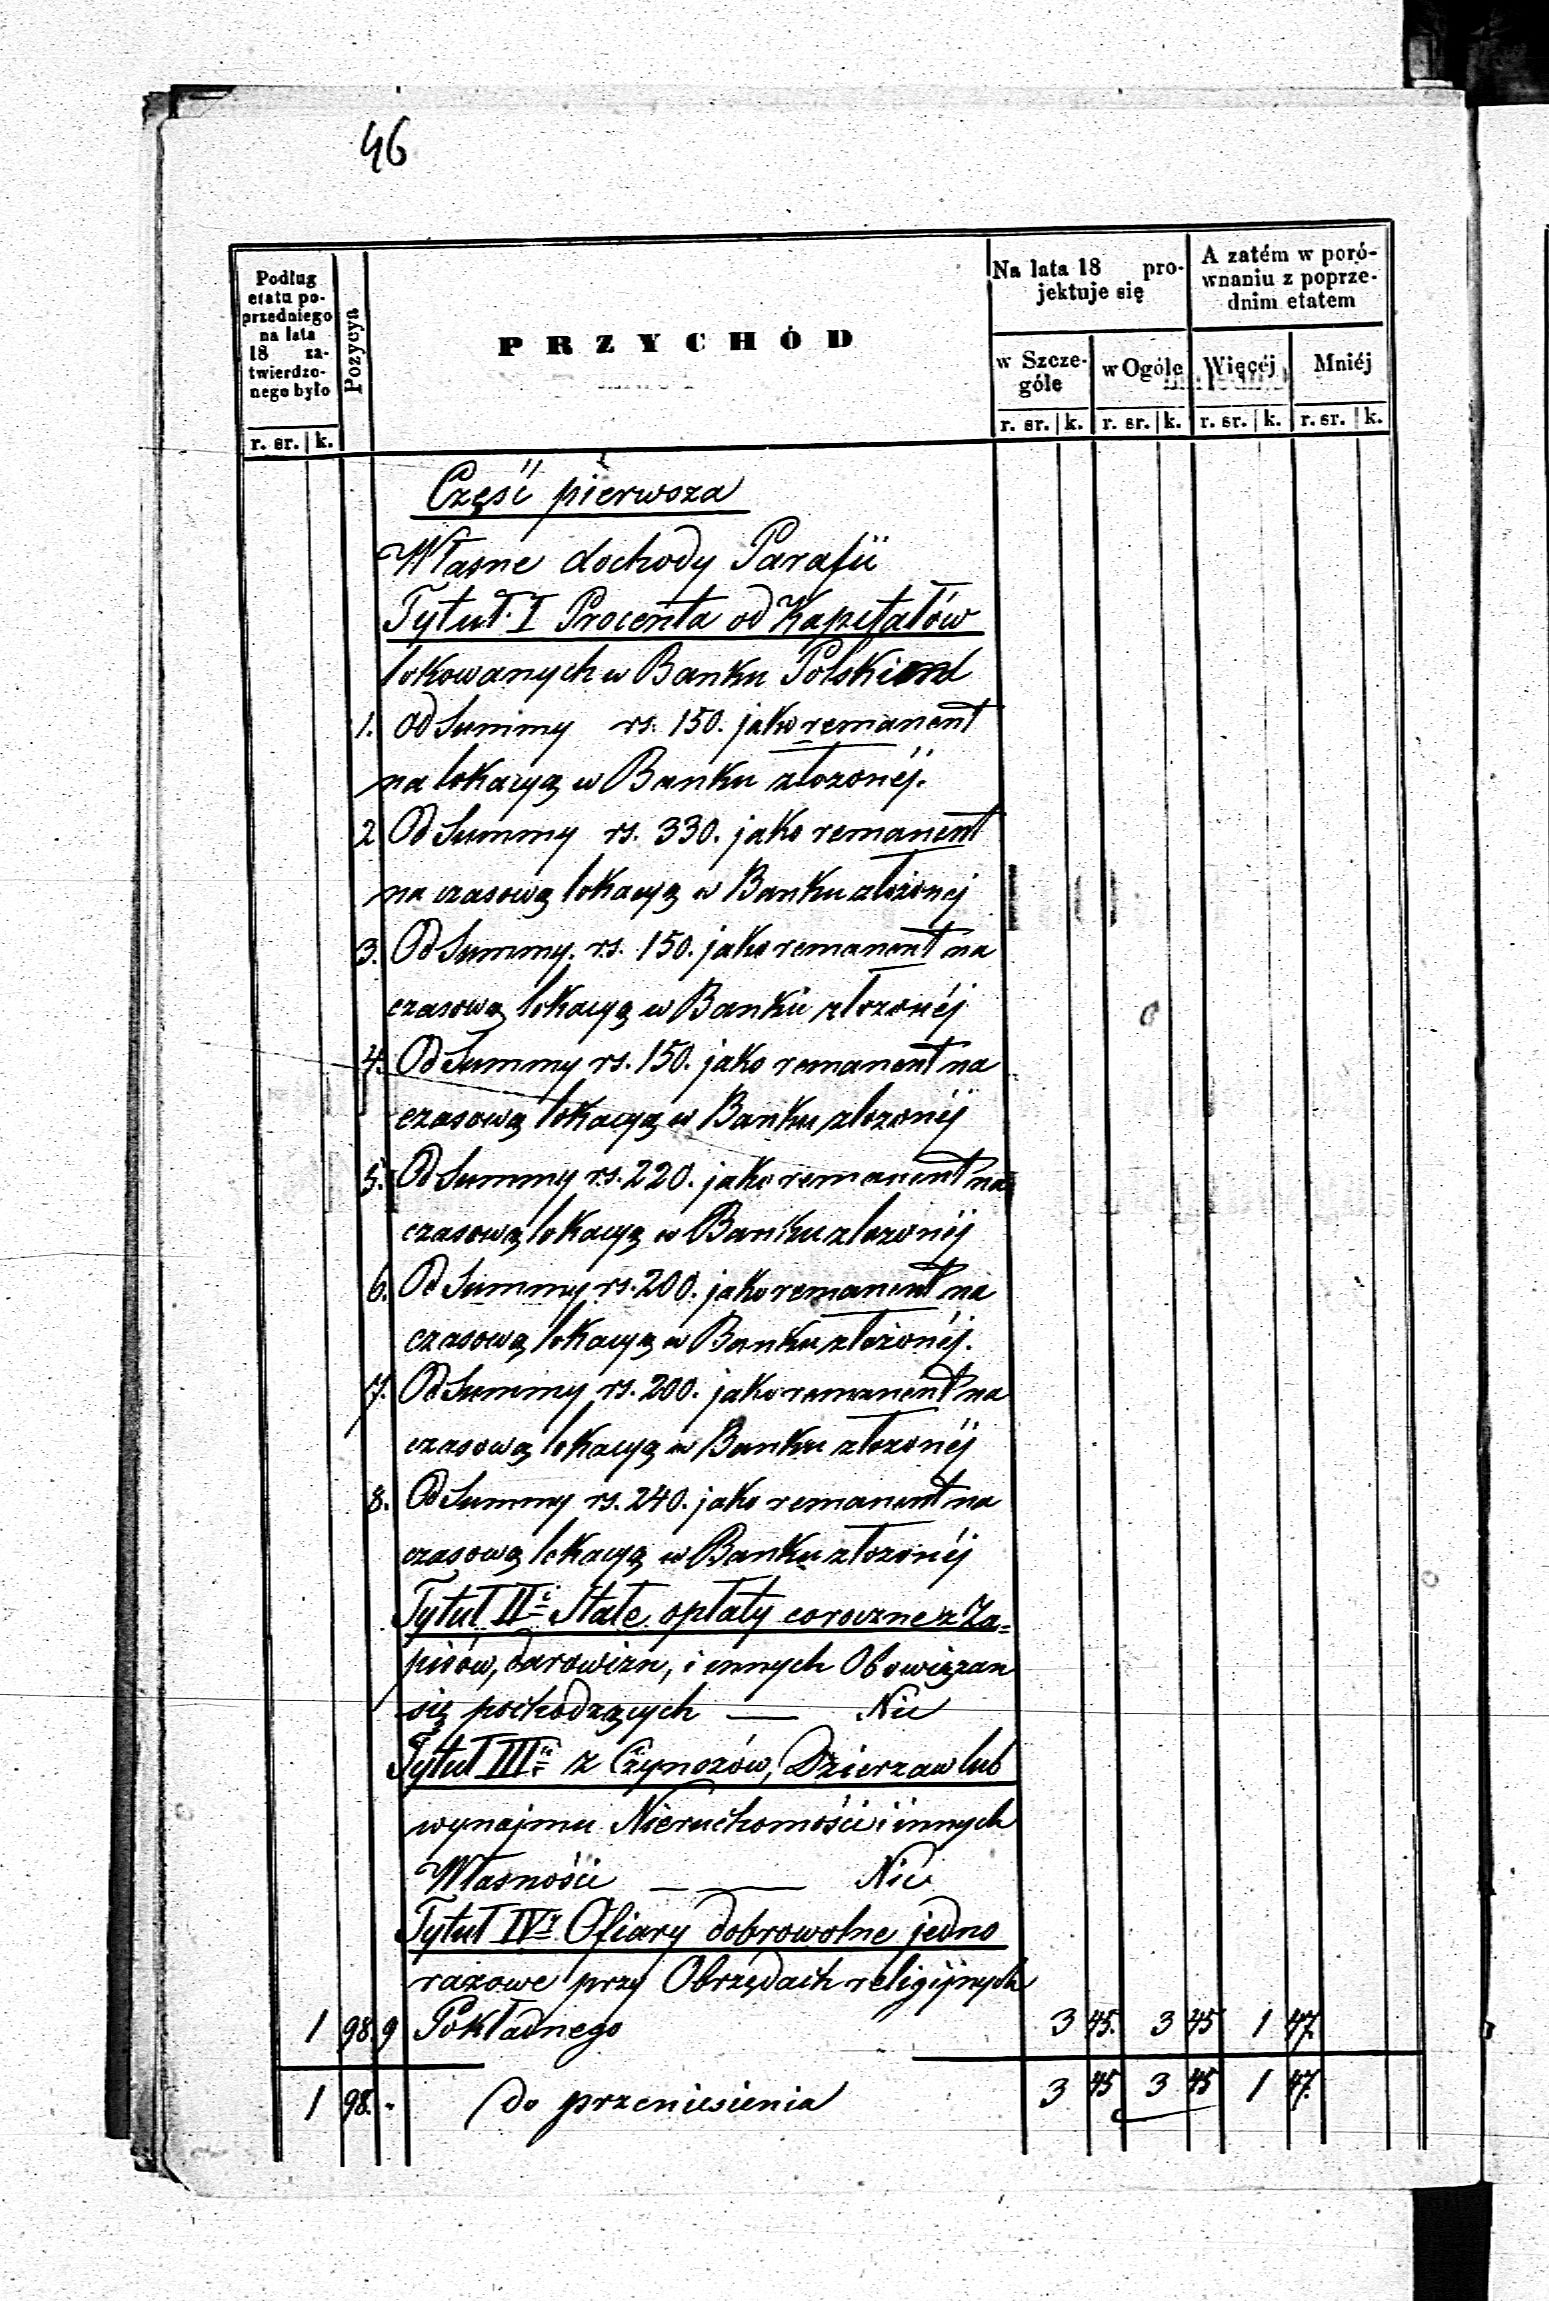 46
Podług
etatu po-
przedniego
na lata
18 za-
twierdzo-
nego było
r. sr. k.
Pozycya
PRZYCHÓD
Na lata 18 pro-
jektuje się
w Szcze-
góle
r. sr. k.
w Ogóle
r. sr. k.
A zatém w poró-
wnaniu z poprze-
dnim etatem
Więcéj
r. sr. k.
Mniéj
r. sr. k.
Część pierwsza
Własne dochody Parafii
Tytuł I Procenta od Kapitałów
lokowanych w Banku Polskim
1. od Summy rs. 150. jako remanent
na lokacyą w Banku złożonéj.
2 Od Summy rs. 330. jako remanent
na czasową lokacyą w Banku złożonéj
3. Od Summy. rs. 150. jako remanent na
czasową lokacyą w Banku złożonéj
4. Od Summy rs. 150. jako remanent na
czasową lokacyą w Banku złożonéj
5. Od Summy rs. 220. jako remanent na
czasową lokacyą w Banku złożonéj
6. Od Summy rs. 200. jako remanent na
czasową lokacyą w Banku złożonéj.
7. Od Summy rs. 200. jako remanent na
czasową lokacyą w Banku złożonéj
8. Od Summy rs. 240. jako remanent na
czasową lokacyą w Banku złożonéj
Tytuł II Stałe opłaty coroczne z Za=
pisów, darowizn, i innych Obowiązan
się pochodzących — Nic
Tytuł III z Czynszów, Dzierzaw lub
wynajmu Nieruchomości i innych
Własności — Nic
Tytuł IV Ofiary dobrowolne jedno
razowe przy Obrzędach religijnych
1 98. 9 Pokładnego 3 45. 3 45 1 47.
1 98. - do przeniesienia 3 45 3 45 1 47.